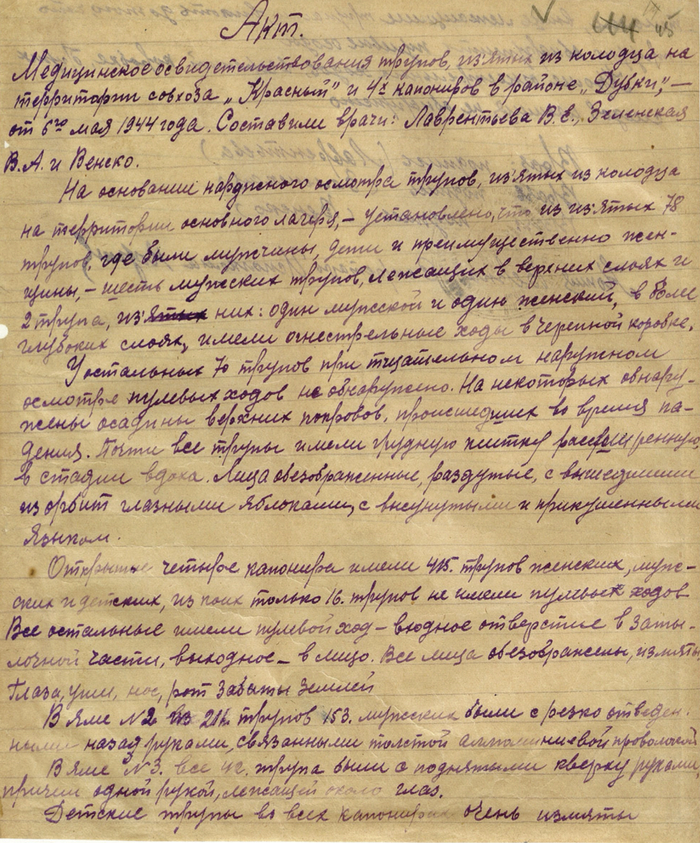 Акт.
45
Медицинское освидетельствования трупов, из'ятых из колодца на
территории совхоза „Красный" и 4х капониров в районе „Дубки",—
от 6го мая 1944 года. Составили врачи: Лаврентьева В.Е., Зеленская
В.А. и Венско.
На основании наружного осмотра трупов, из'ятых из колодца
на территории основного лагеря,— установлено, что из из'ятых 78
трупов, где были мужчины, дети и преимущественно жен-
щины,— шесть мужских трупов, лежащих в верхних слоях и
2 трупа, из них: один мужской и один женский, в более
глубоких слоях, имели огнестрельные ходы в черепной коробке.
У остальных 70 трупов при тщательном наружном
осмотре пулевых ходов не обнаружено. На некоторых обнару-
жены осадины верхних покровов, происшедших во время па-
дения. Почти все трупы имели грудную клетку расширенную
в стадии вдоха. Лица обезображенные, раздутые, с вышедшими
из орбит глазными яблоками, с высунутыми и прикушенными
языком.
Открытые четыре капонира имели 415 трупов женских, муж-
ских и детских, из них только 16. трупов не имели пулевых ходов
Все остальные имели пулевой ход – входное отверстие в заты-
лочной части, выходное – в лицо. Все лица обезображены, измяты
Глаза, уши, нос, рот забиты землей
В яме №2 трупов 153. мужских были с резко отведен-
ными назад руками, связанными толстой аллюминиевой проволокой
В яме №3. все трупа были с поднятыми кверху руками
причем одной рукой, лежащей около глаз.
Детские трупы во всех капонирах очень измяты